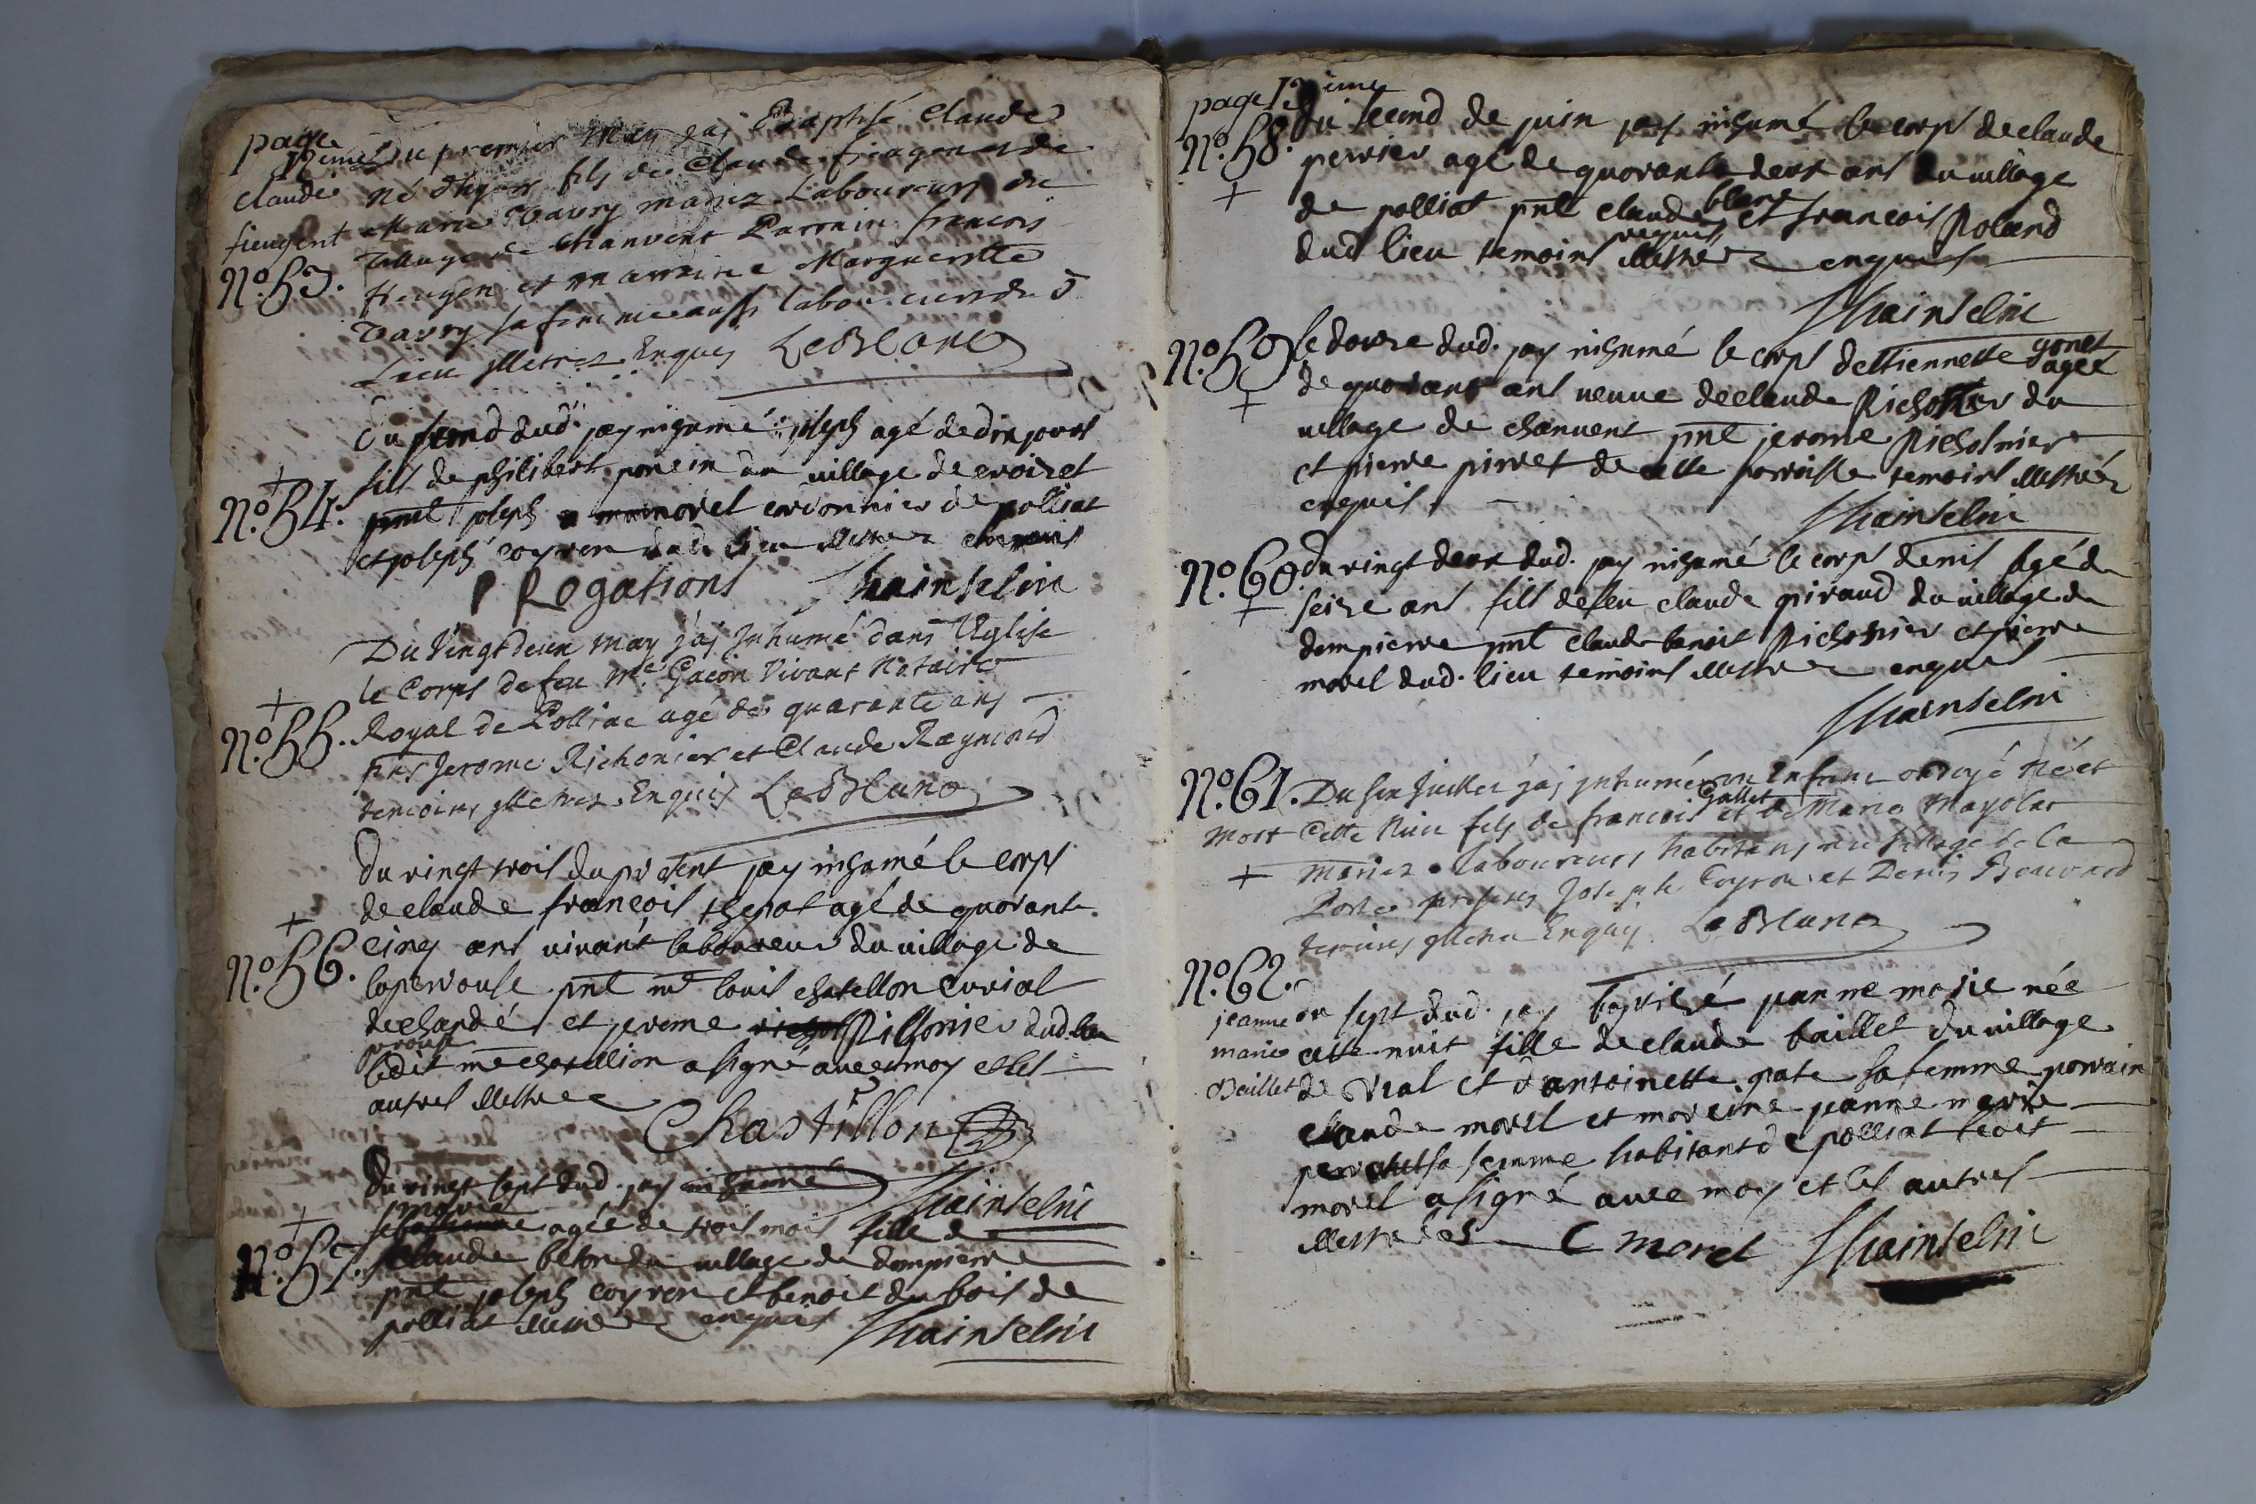 page
12ieme
Du premier May j'ai Baptisé Claude
claude
né d'hyer fils de Claude fieugent et de
fieugent
Marie Vavry mariez Laboureurs du
N°. 53.
village de Chanvent Parrain francois
fieugen et marraine Marguerite
Vavry sa femme aussi laboureurs du
Lieu illetrez Enquis LeBlanc
Du second dud. jay inhumé joseph agé de dix jours
+
N°. 54.
fils de philibert poncin du village de croizet
pnt joseph morel cordonnier de polliat
et joseph coyron dud. lieu illettrez enquis
Rogations Thainselin
Du Vingt deux may j'ai Inhumé dans l'Eglise
le Corps de feu Me Gacon Vivant Notaire
+
N°. 55.
Royal de Polliac agé de quarante ans
pnts Jerome Richonier et Claude Raymond
temoins illetrez Enquis LeBlanc
Du vingt trois du present jay inhumé le corps
de claude francois thepot agé de quarante
+
N°. 56.
cinq ans vivant laboureur du village de
laperouse pnt me louis chatellon curial
de chandé et jerome Richonier dud. lieu
ledit me chatellion a signé avec moy et les
autres illettrez
Chastillon
Du vingt sept dud. jay inhumé
Thainselin
marie
+
agée de trois mois fille de
N°. 57.
claude beton du village de dompierre
pnt joseph coyron et benoit du bois de
polliat illettrez enquis
Thainselin
page 13ieme
N°. 58.
+
du second de juin jay inhumé le corps de claude
perrier agé de quarante deux ans du village
blanc
de polliat pnt claude et francois Roland
requis
dud lieu temoins illettrez enquis
Thainselin
N°. 59
+
le douze dud. jay inhumé le corps dettiennette gonet
agée
de quarante ans veuve de claude Richonier du
village de chanvent pnt jerome Richonier
et pierre pirret de cette parroisse temoins illettréz
enquis
Thainselin
N°. 60.
+
du vingt deux dud. jay inhumé le corps denis agé de
seize ans fils de feu claude giraud du village de
dompierre pnt claude benoit Richonier et pierre
morel dud. lieu temoins illettrez enquis
Thainselin
N°. 61.
Du six Juillet j'ai inhumé un Enfant ondoyé Né et
Gallet
mort Cette Nuit fils de francois et de Marie Mayolet
+
mariez laboureurs habitans au village de la
Poste presents Joseph Coyron et Denis Bouvard
temoins illetrez Enquis LeBlanc
N°. 62.
jeanne
marie
Baillet
du sept dud. jay baptisé janne marie née
cette nuit fille de claude baillet du village
de vial et d'antoinette pate sa femme parrain
claude morel et mareine jeanne marie
perruchet sa femme habitant de polliat ledit
morel a signé avec moy et les autres
illettrées C morel Thainselin